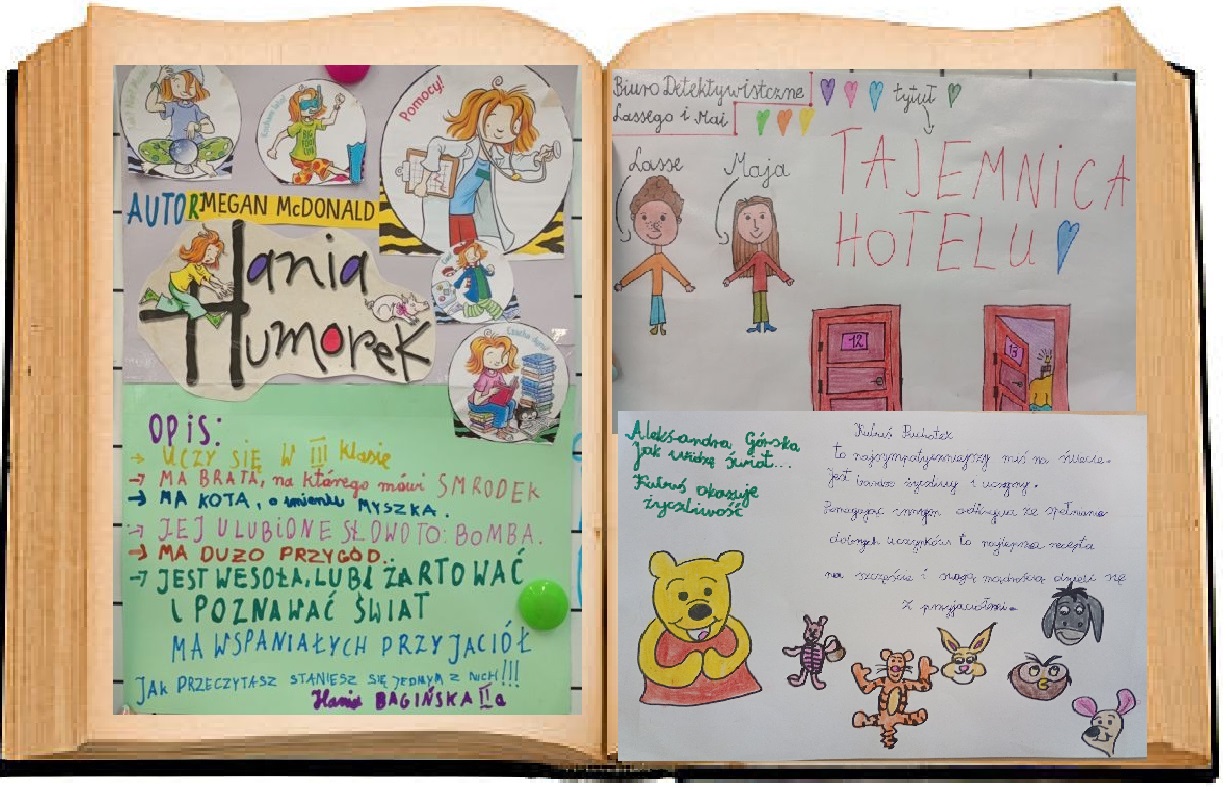 Pomocy!
AUTOR MEGAN McDONALD
Hania
Humorek
OPIS:
→ UCZY SIĘ W III klasie
→ MA BRATA, na którego mówi SMRODEK
→ MA KOTA, o imieniu MYSZKA.
→ JEJ ULUBIONE SŁOWO TO: BOMBA.
→ MA DUŻO PRZYGÓD..
→ JEST WESOŁA, LUBI ŻARTOWAĆ
I POZNAWAĆ ŚWIAT
MA WSPANIAŁYCH PRZYJACIÓŁ
JAK PRZECZYTASZ STANIESZ SIĘ JEDNYM Z NICH!!!
Hania BAGIŃSKA II a
Biuro Detektywistczne
Lassego i Mai
tytuł
TAJEMNICA
HOTELU
Lasse
Maja
12
13
Aleksandra Górska
Jak widzę świat...
Kubuś okazuje
życzliwość
Kubuś Puchatek
to najsympatyczniejszy miś na świecie.
Jest bardzo życzliwy i uczynny.
Pomagając innym odkrywa że spełnianie
dobrych uczynków to najlepsza recepta
na szczęście i swoją mądrością dzieli się
z przyjaciółmi.